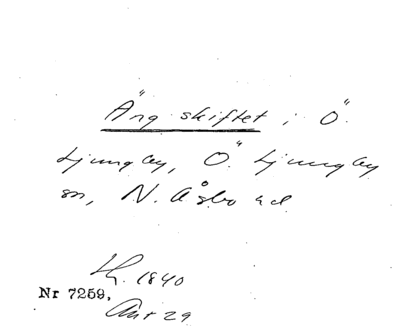 Äng skiftet i Ö.
Ljungby, Ö. Ljungby
sn, N. Åsbo hd
1840
Nr 7259,
Akt 29